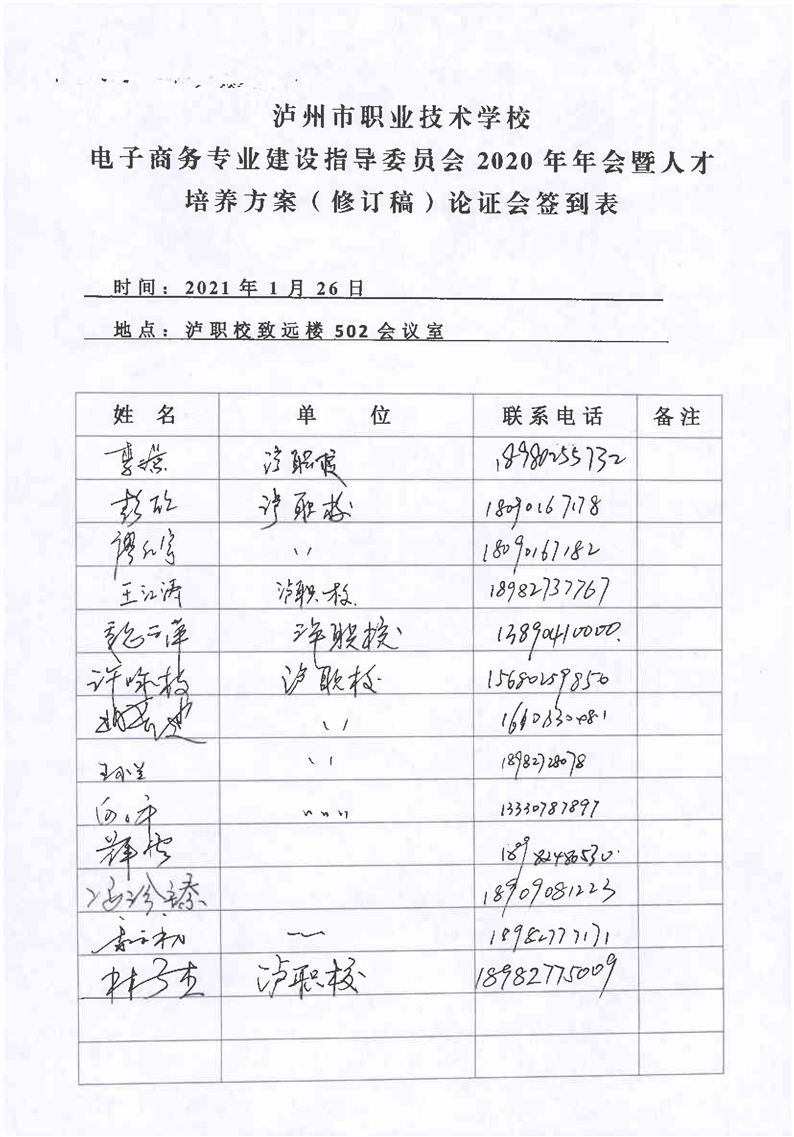 泸州市职业技术学校
电子商务专业建设指导委员会 2020 年年会暨人才
培养方案（修订稿）论证会签到表
时间：2021 年 1 月 26 日
地点：泸职校致远楼 502 会议室
姓 名 单 位 联系电话 备注
泸职校 18980255732
彭欣 泸职校 18090167178
〃 18090167182
王江涛 泸职校 18982737767
泸职校 13890410000
许咏梅 泸职校 15680259850
〃
〃 18982728078
〃 13330787897
18909081223
〃 18982777171
林子杰 泸职校 18982775009